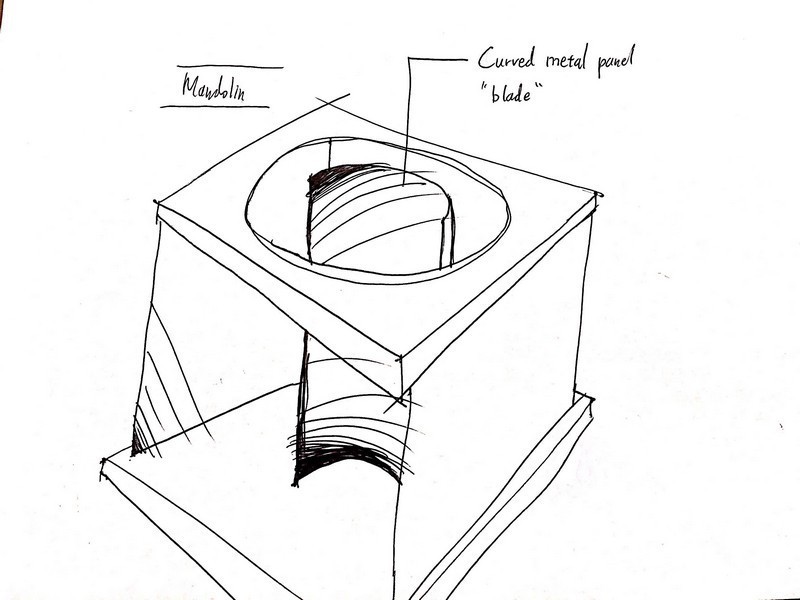 Mandolin
Curved metal panel
"blade"